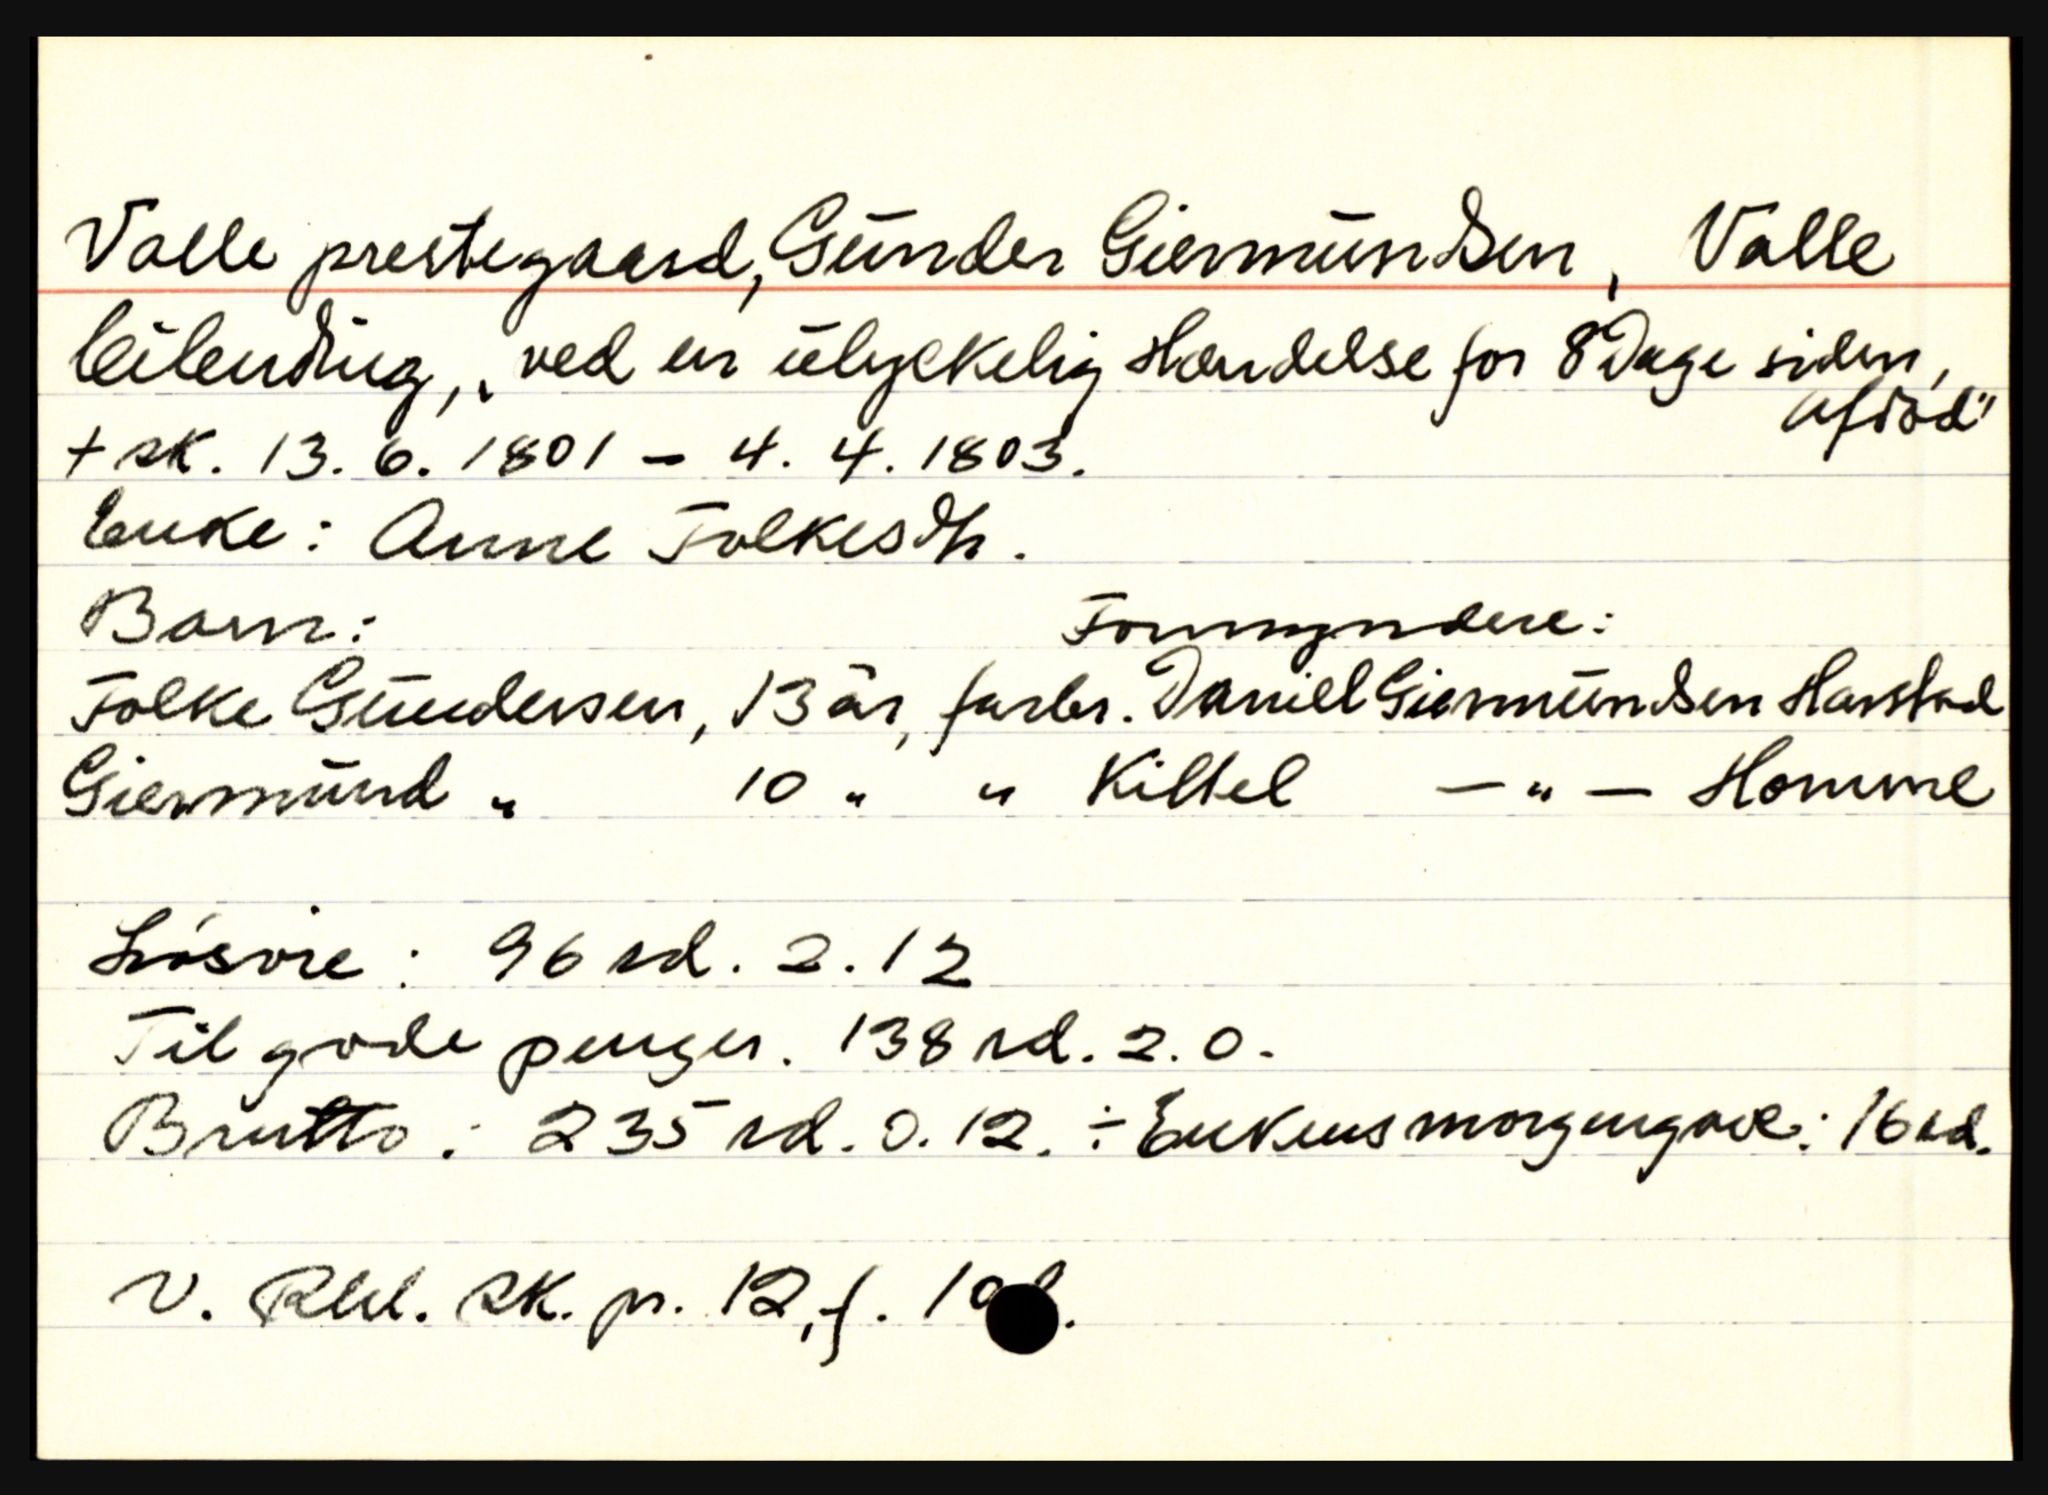 Valle prestegaard, Gunder Giermundsen, Valle
leilending, „ ved en ulyckelig Hændelse for 8 Dage siden,
afdød"
+ sk. 13. 6. 1801 - 4. 4. 1803.
Enke: Anne Folkesdtr.
Barn: Formyndere:
Folke Gundersen, 13 år, farbr. Daniel Giermundsen Harstad
Giermund " 10 " " Kittel - " - Homme
Løsøre: 96 rd. 2. 12
Tilgode penger. 138 rd. 2. 0.
Brutto: 235 rd. 0. 12. ÷ Enkens morgengave: 16 rd.
V. Rbd. sk. pr. 12, f.